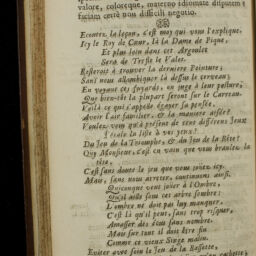 valore, coloreque, materno idiomate disputem
faciam certè non difficili negotio.
Ecoutez la leçon, c'est moy qui vous l'explique.
Icy le Roy de Cœur, là la Dame de Pique,
Et plus loin dans cet Argoulet
Sera de Trefle le Valet.
Resteroit à trouver la derniere Peinture;
Sans nous alambiquer là dessus le cerveau;
En voyant ces fuyards, on juge à leur posture,
Que bien-tôt la plupart seront sur le Carreau.
Voilà ce qui s'appelle égayer sa pensée,
Avoir l'air familier, & la maniere aisée?
Voulez-vous qu'à présent de tous differens Jeux
J'étale la liste à vos yeux?
Du Jeu de la Triomphe, & du Jeu de la Bête?
Ouy Monsieur, c'est en vain que vous branlez la
tête,
C'est sans doute le jeu que vous joüez icy.
Mais, sans nous arrêter, continuons ainsi.
Quiconque veut joüer à l'Ombre,
Qu'il aille sous ces arbres sombres:
L'ombre ne doit pas luy manquer.
C'est là qu'il peut, sans trop risquer,
Amasser des écus sans nombre.
Mais sur tout il doit être fin
Comme ce vieux Singe malin.
Eviter avec soin le Jeu de la Bassette,